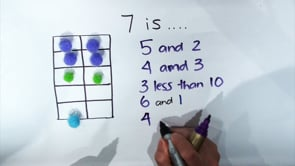 7 is ....
5 and 2
4 and 3
3 less than 10
6 and 1
4